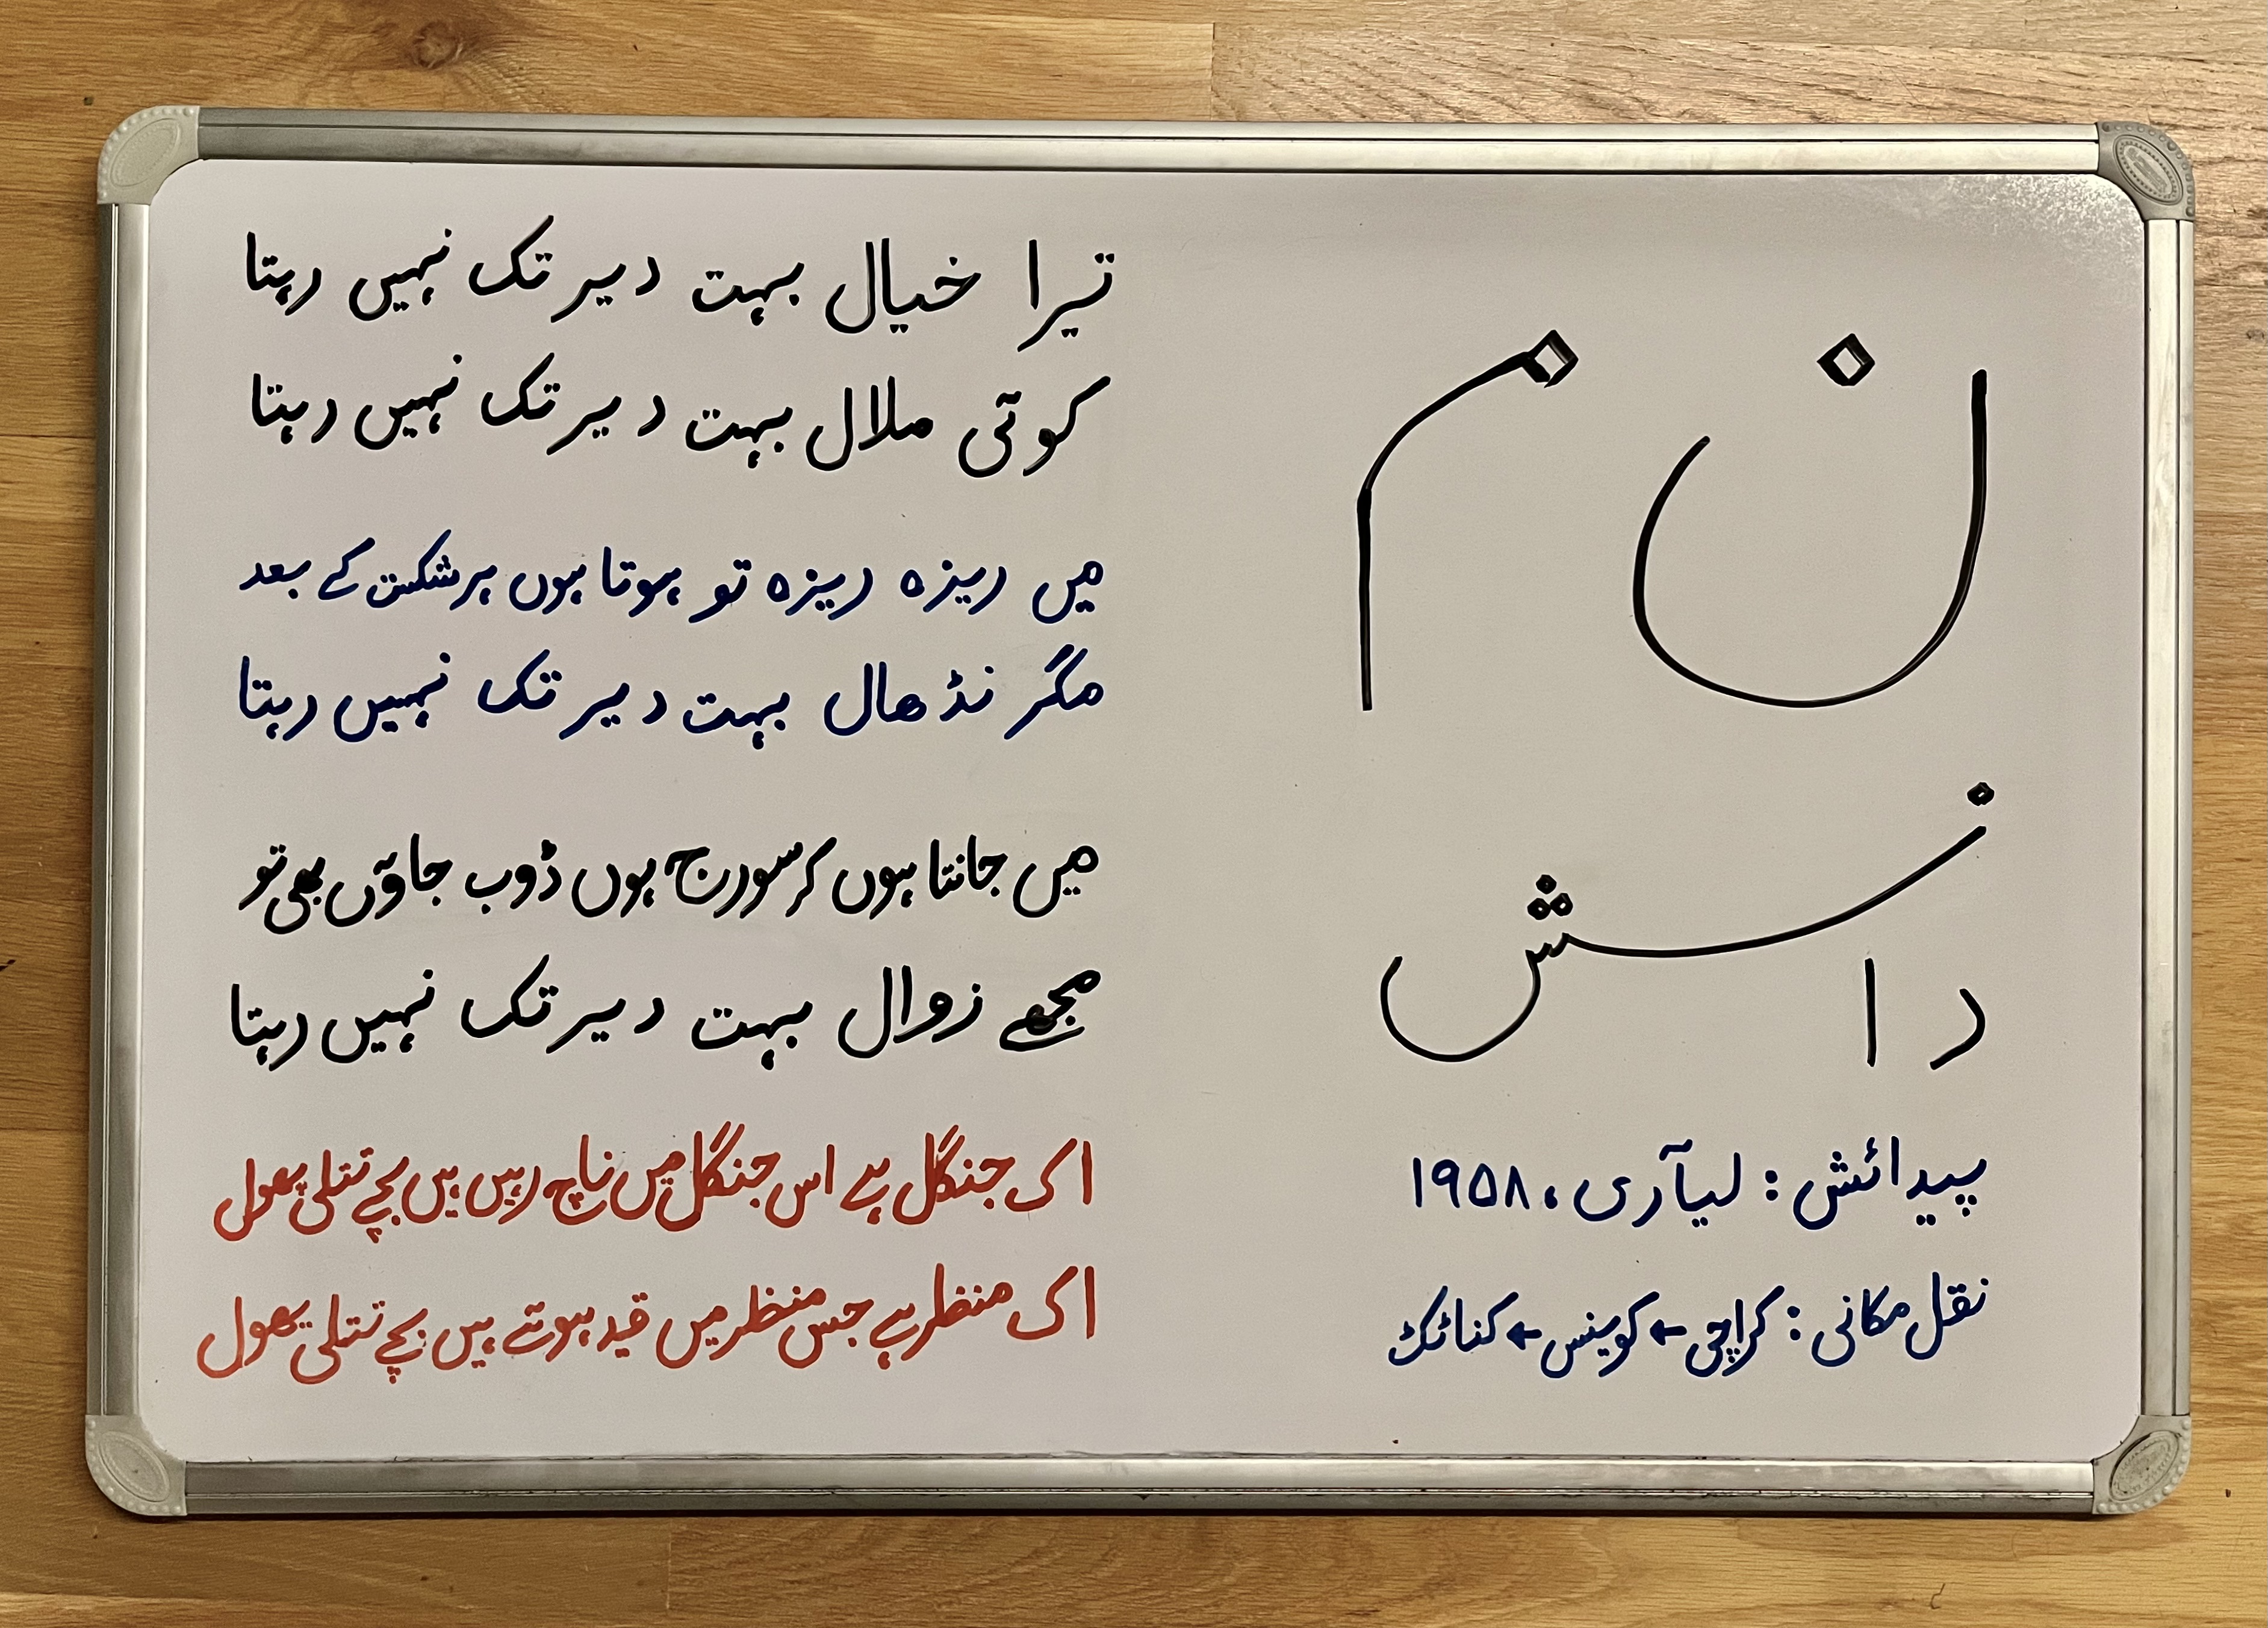 ن م
دانش
پیدائش : لیآری، ۱۹۵۸
نقل مکانی : کراچی ← کوینس ← کناٹکٹ
تیرا خیال بہت دیر تک نہیں رہتا
کوئی ملال بہت دیر تک نہیں رہتا
میں ریزہ ریزہ تو ہوتا ہوں ہر شکست کے بعد
مگر نڈھال بہت دیر تک نہیں رہتا
میں جانتا ہوں کہ سورج ہوں ڈوب جاؤں بھی تو
مجھے زوال بہت دیر تک نہیں رہتا
اک جنگل ہے اس جنگل میں ناچ رہیں ہیں بچے تتلی پھول
اک منظر ہے جس منظر میں قید ہوئے ہیں بچے تتلی پھول